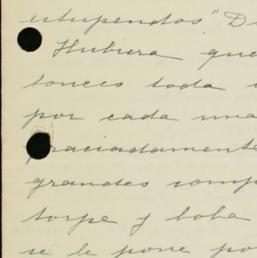 estupendos." D
Hubiera que
tonces toda
por cada una
graciadamente
grandes comp
torpe y boba
se le pone po